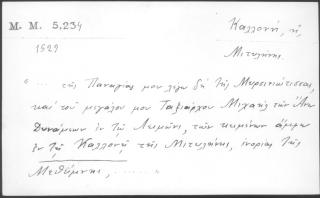 Μ. Μ. 5,234
Καλλονή, ἡ,
1529
Μιτυλήνη.
"... τῆς Παναγίας μου λέγω δὴ τῆς Μυρσινιώτισσας,
καὶ τοῦ μεγάλου μου Ταξιάρχου Μιχαὴλ τῶν Ἄνω
Δυνάμεων ἐν τῷ Λειμῶνι, τῶν κειμένων ἀμφω
ἐν τῇ Καλλονῇ τῆς Μιτυλήνης, ἐνορίας τῆς
Μεθύμνης, ........ "